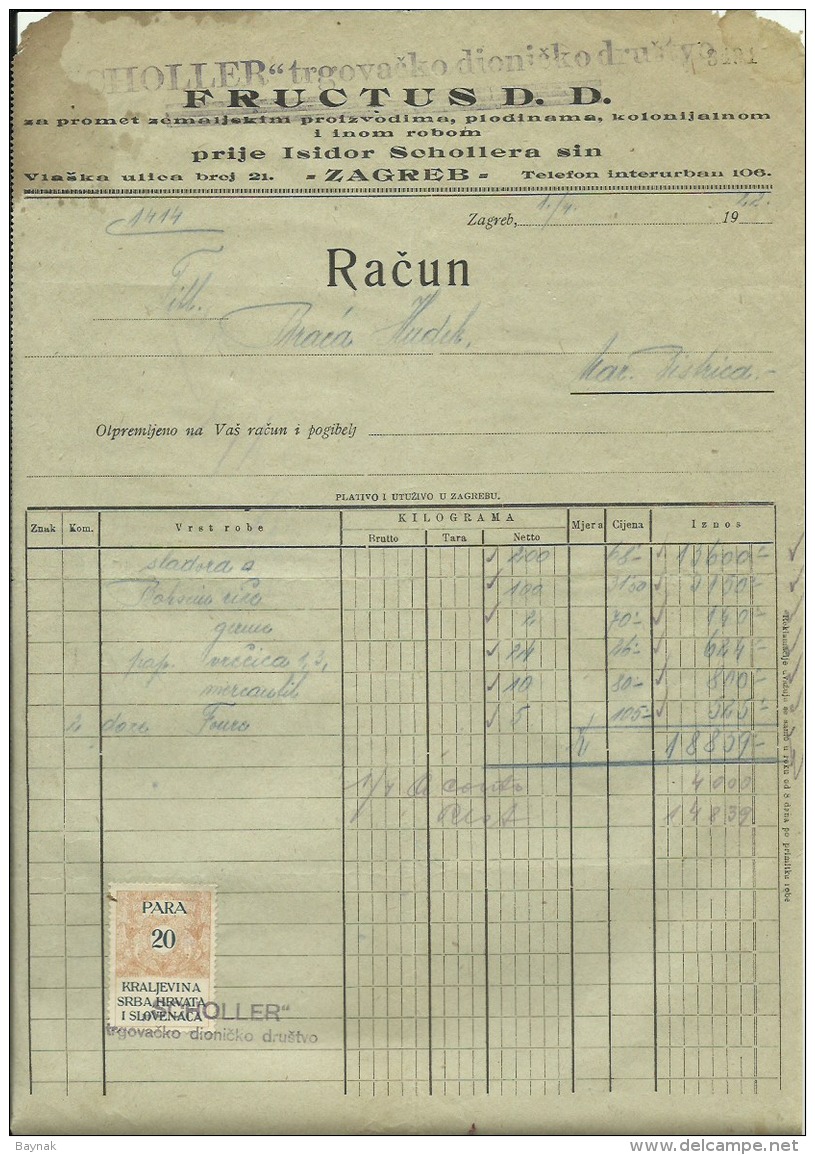 SCHOLLER“ trgovačko dioničko društvo
FRUCTUS D. D.
za promet zemaljskim proizvodima, plodinama, kolonijalnom
i inom robom
prije Isidor Schollera sin
Vlaška ulica broj 21. - ZAGREB - Telefon interurban 106.
1414
Zagreb, 1./4. 1922.
Račun
Titl.
Braća Hudek,
Mar. Bistrica.-
Otpremljeno na Vaš račun i pogibelj
PLATIVO I UTUŽIVO U ZAGREBU.
Znak Kom. Vrst robe KILOGRAMA Mjera Cijena Iznos
Brutto Tara Netto
sladora 200 68- 13600-
100 3150 3150-
2 70- 140-
pap. vrećica 24 26- 624-
10 80-
2 5 105-
K 18839-
1/4 a conto 4000
Rest 14839
Reklamacije uvažuju se samo u roku od 8 dana po primitku robe
PARA
20
KRALJEVINA
SRBA, HRVATA
I SLOVENACA
„SCHOLLER“
trgovačko dioničko društvo
Baynak
www.delcampe.net